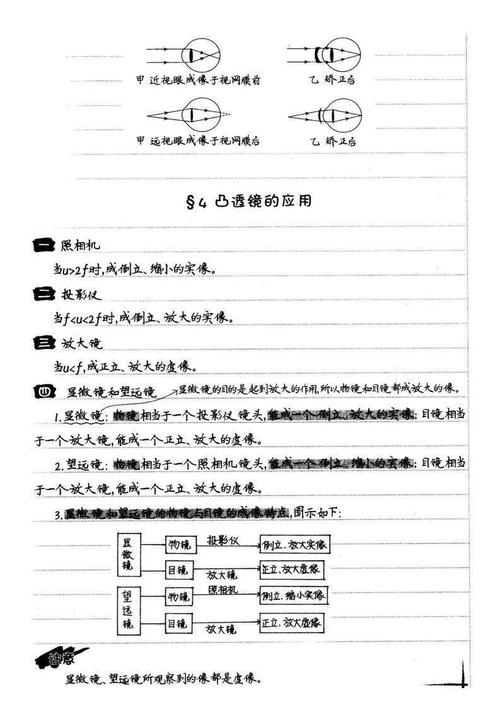 甲 近视眼成像于视网膜前 乙 矫正后
甲 远视眼成像于视网膜后 乙 矫正后
§4 凸透镜的应用
一 照相机
当u>2f时,成倒立、缩小的实像。
二 投影仪
当f<u<2f时,成倒立、放大的实像。
三 放大镜
当u<f,成正立、放大的虚像。
四 显微镜和望远镜 显微镜的目的是起到放大的作用,所以物镜和目镜都成放大的像。
1.显微镜:物镜相当于一个投影仪镜头,能成一个倒立、放大的实像;目镜相当
于一个放大镜,能成一个正立、放大的虚像。
2.望远镜:物镜相当于一个照相机镜头,能成一个倒立、缩小的实像;目镜相当
于一个放大镜,能成一个正立、放大的虚像。
3.显微镜和望远镜的物镜与目镜的成像特点,图示如下:
显微镜
物镜 投影仪 倒立、放大实像
目镜 放大镜 正立、放大虚像
望远镜
物镜 照相机 倒立、缩小实像
目镜 放大镜 正立、放大虚像
注意
显微镜、望远镜所观察到的像都是虚像。